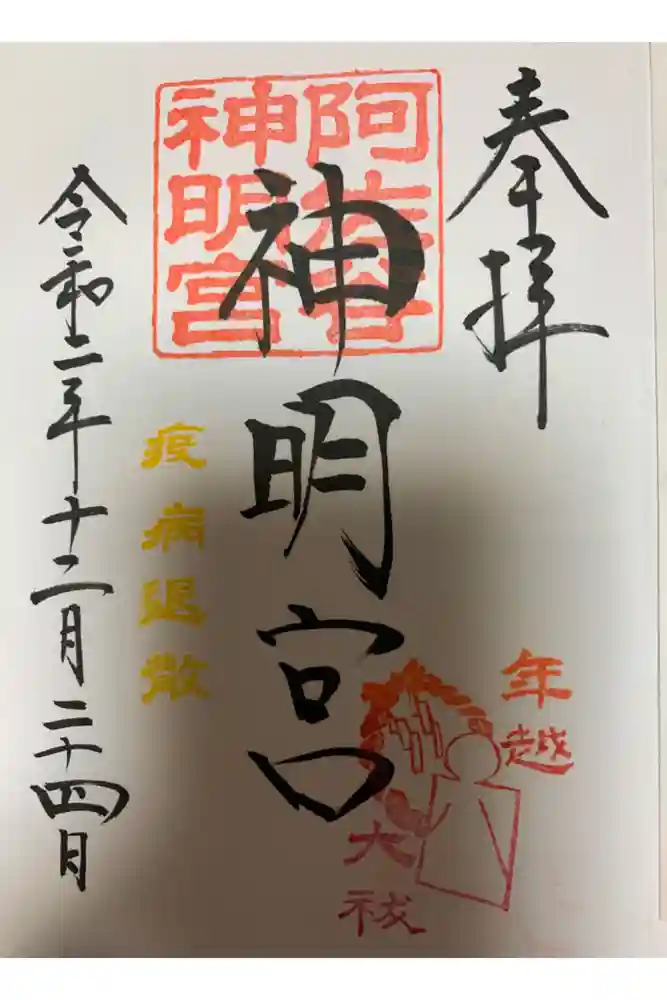 奉拝
阿佐谷
神明宮
神明宮
年越
大祓
疫病退散
令和二年十二月二十四日